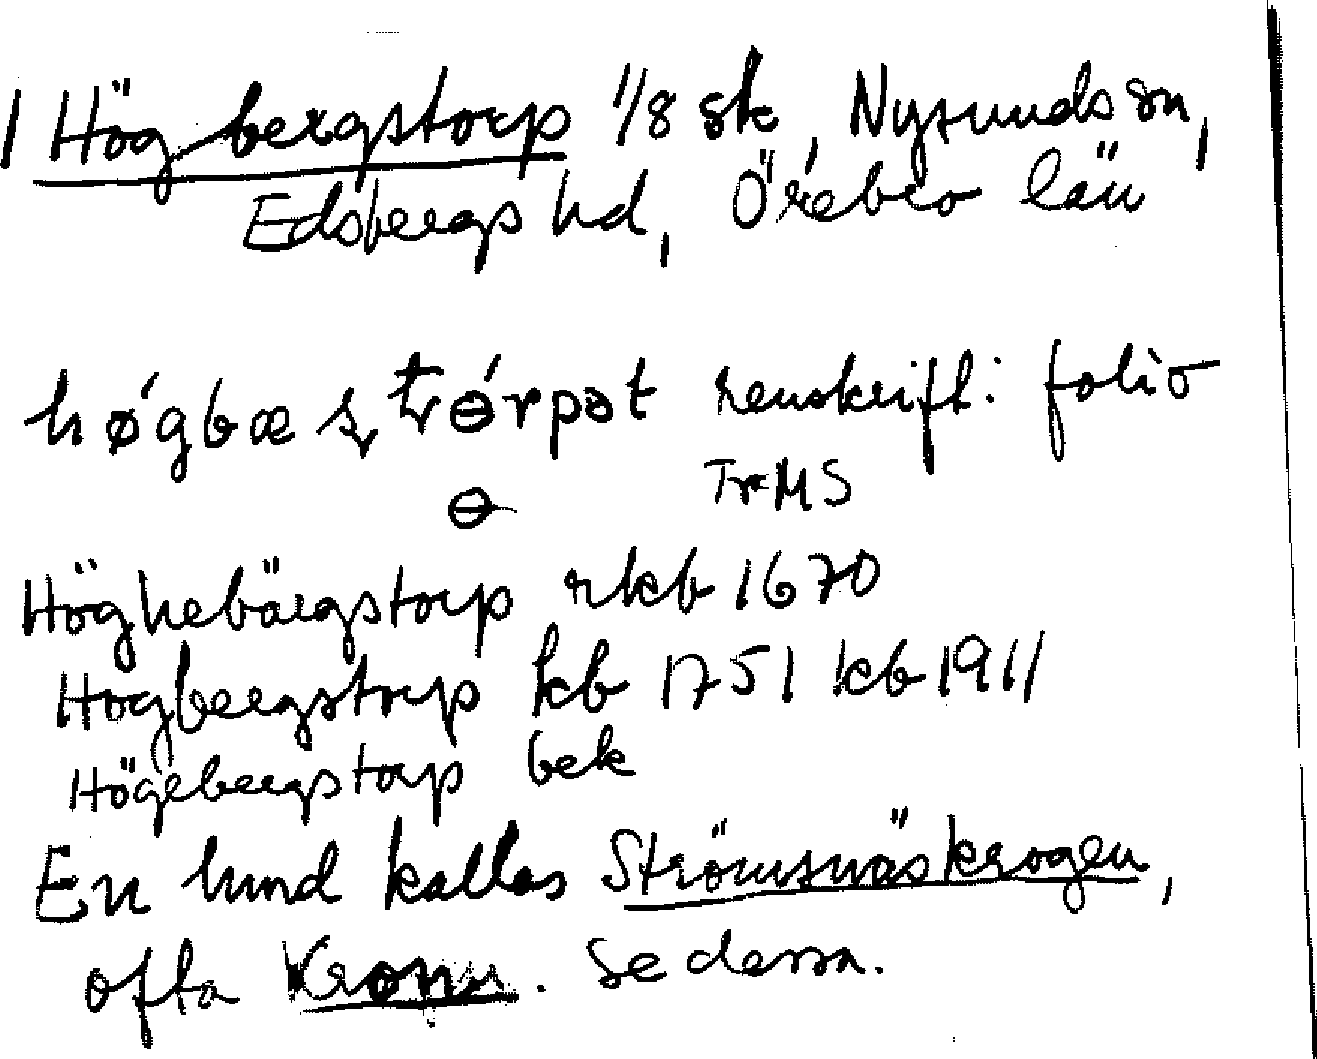 / Högbergstorp 1/8 sk, Nysunds sn,
Edsbergs hd, Örebro län
renskrift: folio
TrMS
Höghebärgstorp rkb 1670
Högbergstorp kb 1751 kb 1911
Högebergstorp bek
En lund kallas Strömsnäskrogen,
ofta . Se dessa.